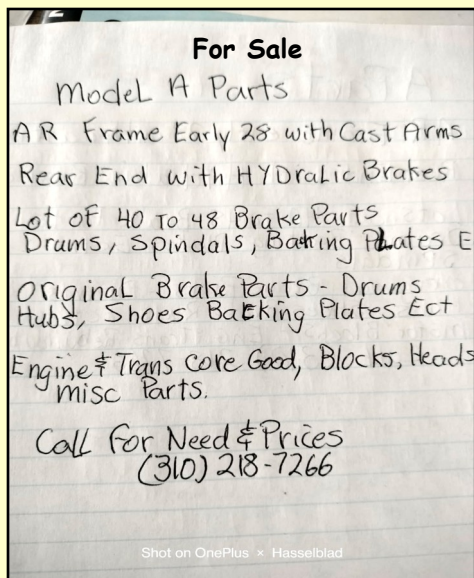 For Sale
Model A Parts
AR Frame Early 28 with Cast Arms
Rear End with HYDraLic Brakes
Lot of 40 To 48 Brake Parts
Drums, Spindals, Batking PLates E
Original Brake Parts - Drums
Hubs, Shoes Backing Plates Ect
Engine & Trans core Good, Blocks, Heads
misc Parts.
Call For Need & Prices
(310) 218-7266
Shot on OnePlus × Hasselblad